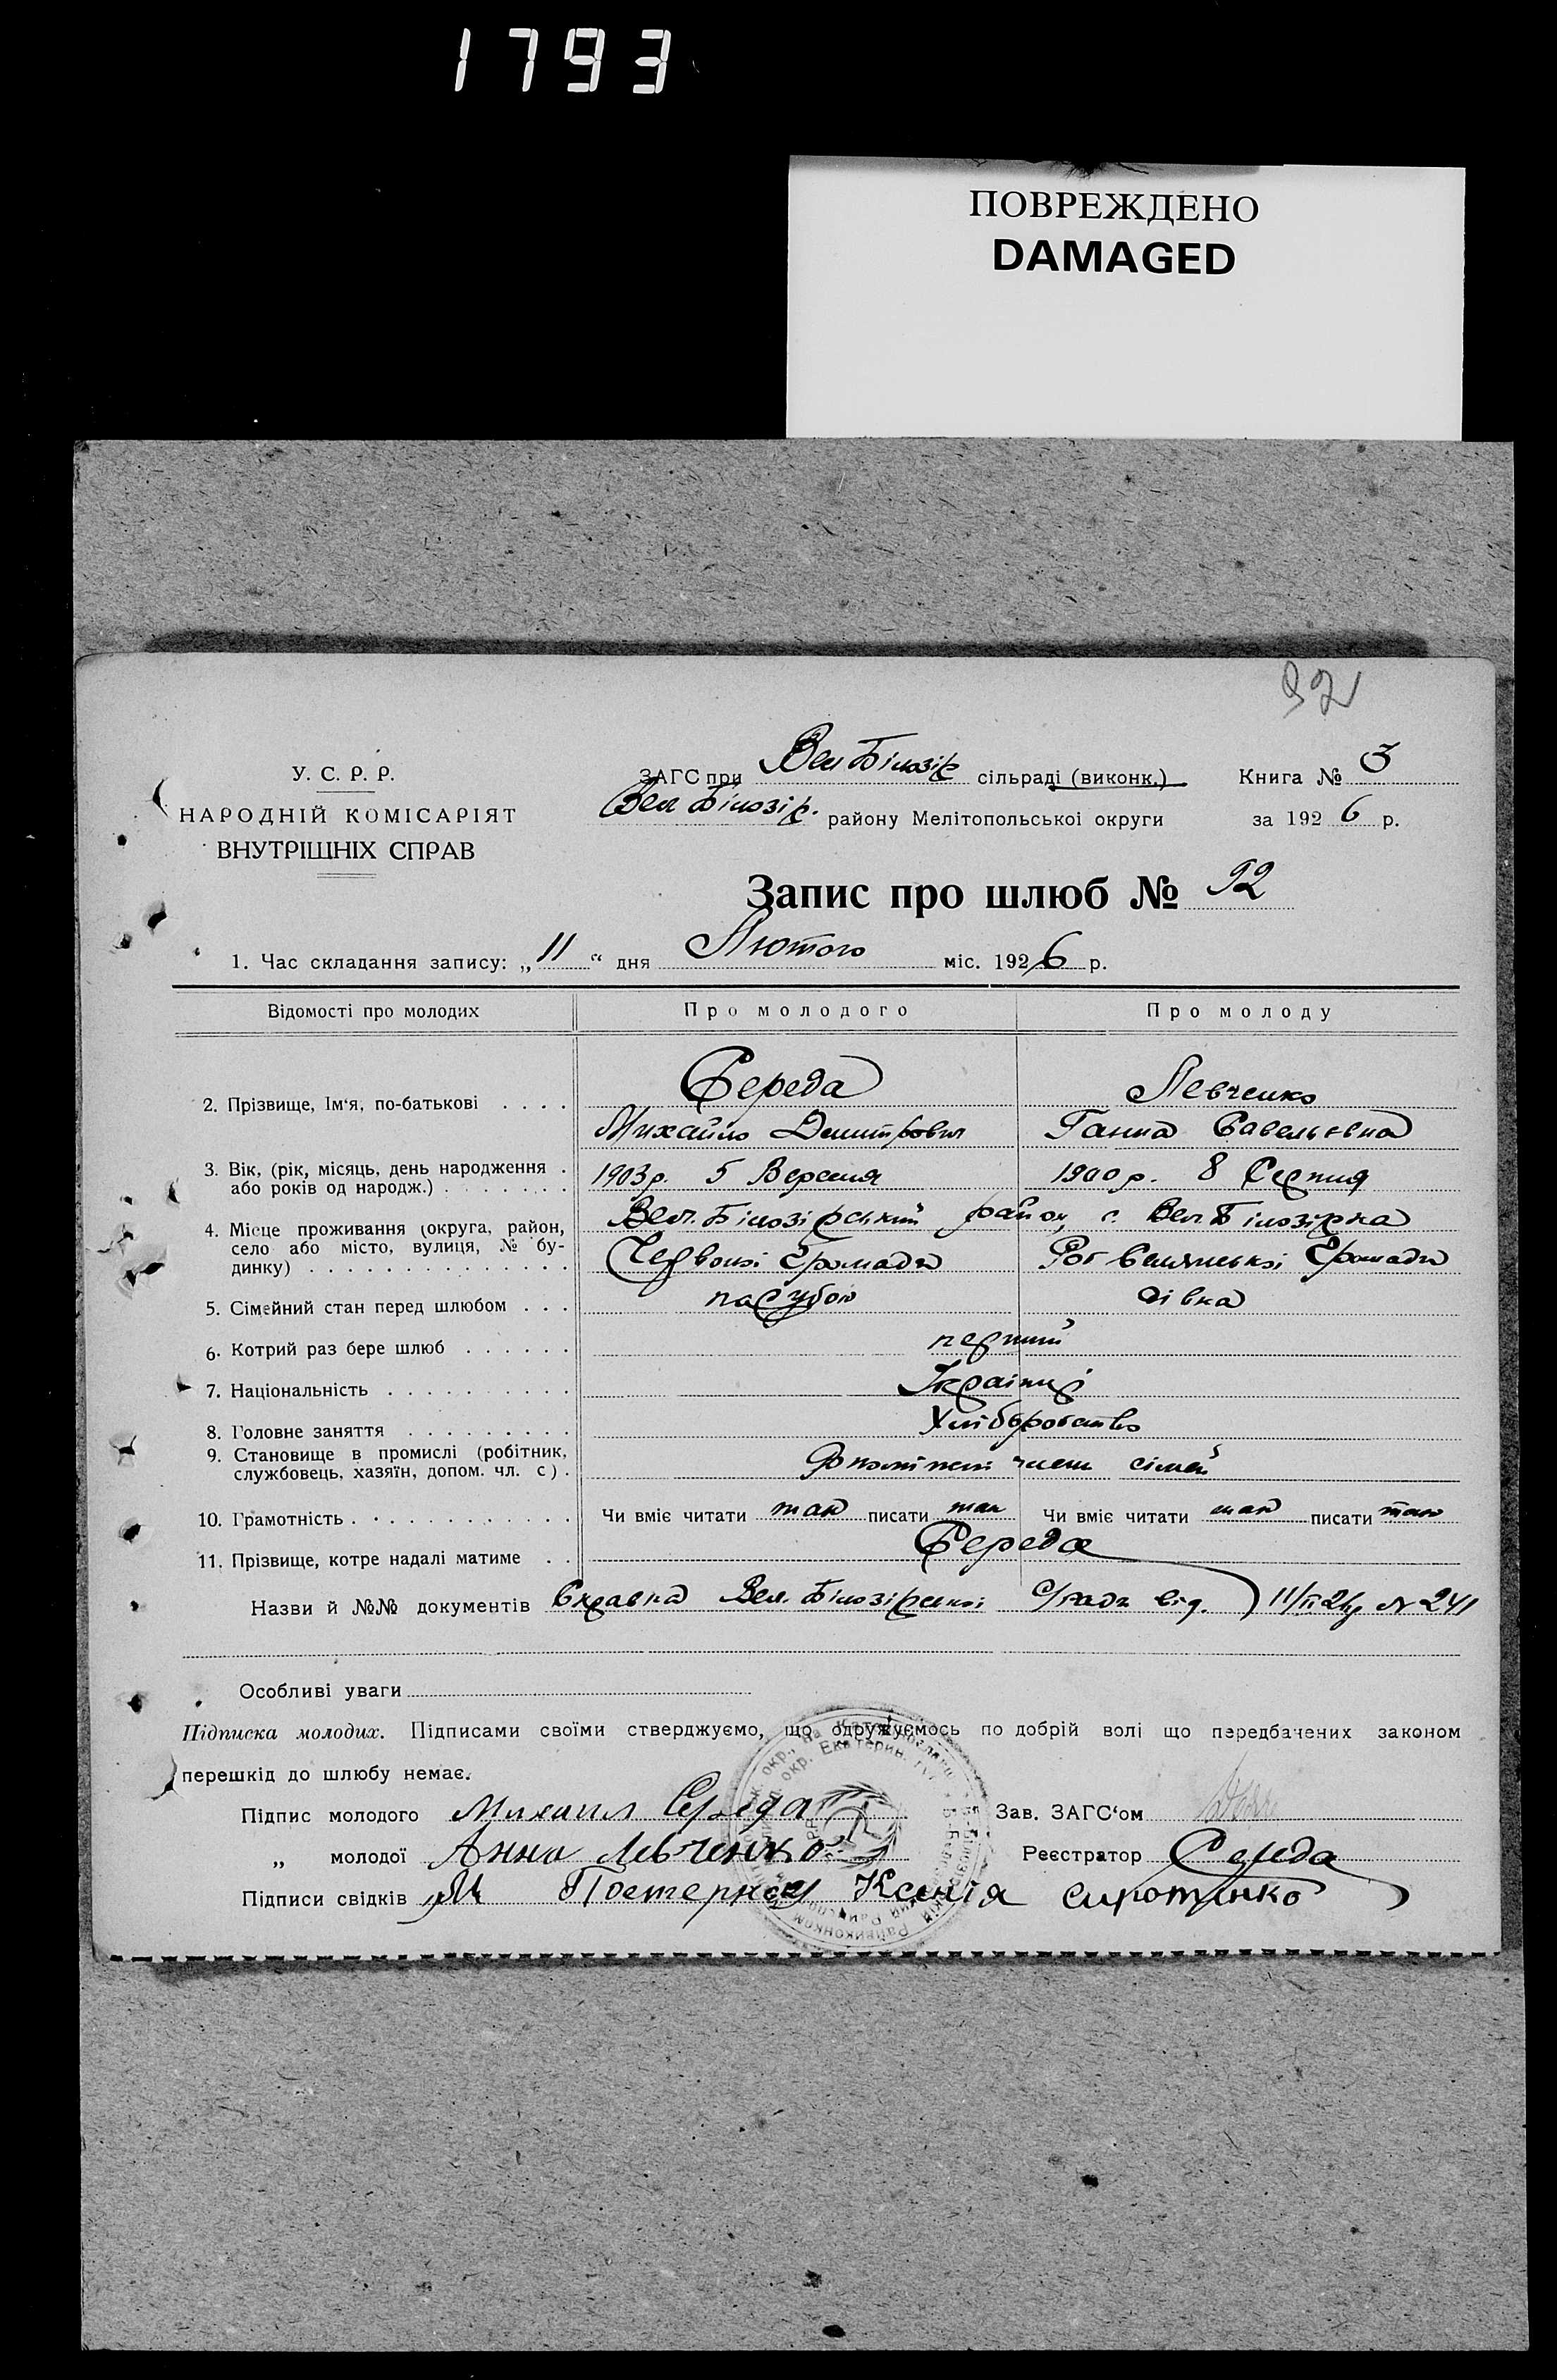 1793
ПОВРЕЖДЕНО
DAMAGED
92
У. С. Р. Р.
НАРОДНІЙ КОМІСАРІЯТ
ВНУТРІШНІХ СПРАВ
ЗАГС при Вел Білозір сільраді (виконк.) Книга № 3
Вел Білозір. району Мелітопольськоі округи за 1926 р.
Запис про шлюб № 92
1. Час складання запису: „11“ дня Лютого міс. 1926 р.
Відомості про молодих Про молодого Про молоду
2. Прізвище, Ім‘я, по-батькові . . . . Середа Левченко
Михайло Дмитрович Ганна Савельевна
3. Вік, (рік, місяць, день народження . або років од народж.) . . . . . . . 1903 р. 5 Вересня 1900 р. 8 Серпня
4. Місце проживання (округа, район, Вел. Білозірський район, с. Вел Білозірка
село або місто, вулиця, № бу-
динку) . . . . . . . . . . . . . . Червоноі Громади Громади
5. Сімейний стан перед шлюбом . . . парубок дівка
6. Котрий раз бере шлюб . . . . . . перший
7. Національність . . . . . . . . . . Українці
8. Головне заняття . . . . . . . . . Хліборобство
9. Становище в промислі (робітник,
службовець, хазяїн, допом. чл. с). член сімей
10. Грамотність . . . . . . . . . . . . Чи вміє читати так писати так Чи вміє читати так писати так
11. Прізвище, котре надалі матиме . . Середа
Назви й №№ документів Справка Вел. Білозірськоі С/ради від. 11/II 26 р № 241
Особливі уваги
Підписка молодих. Підписами своїми стверджуємо, що одружуємось по добрій волі що передбачених законом
перешкід до шлюбу немає.
Підпис молодого Михаил Середа Зав. ЗАГС‘ом
„ молодої Анна Левченко Реєстратор Середа
Підписи свідків Ксенія Сиротенко